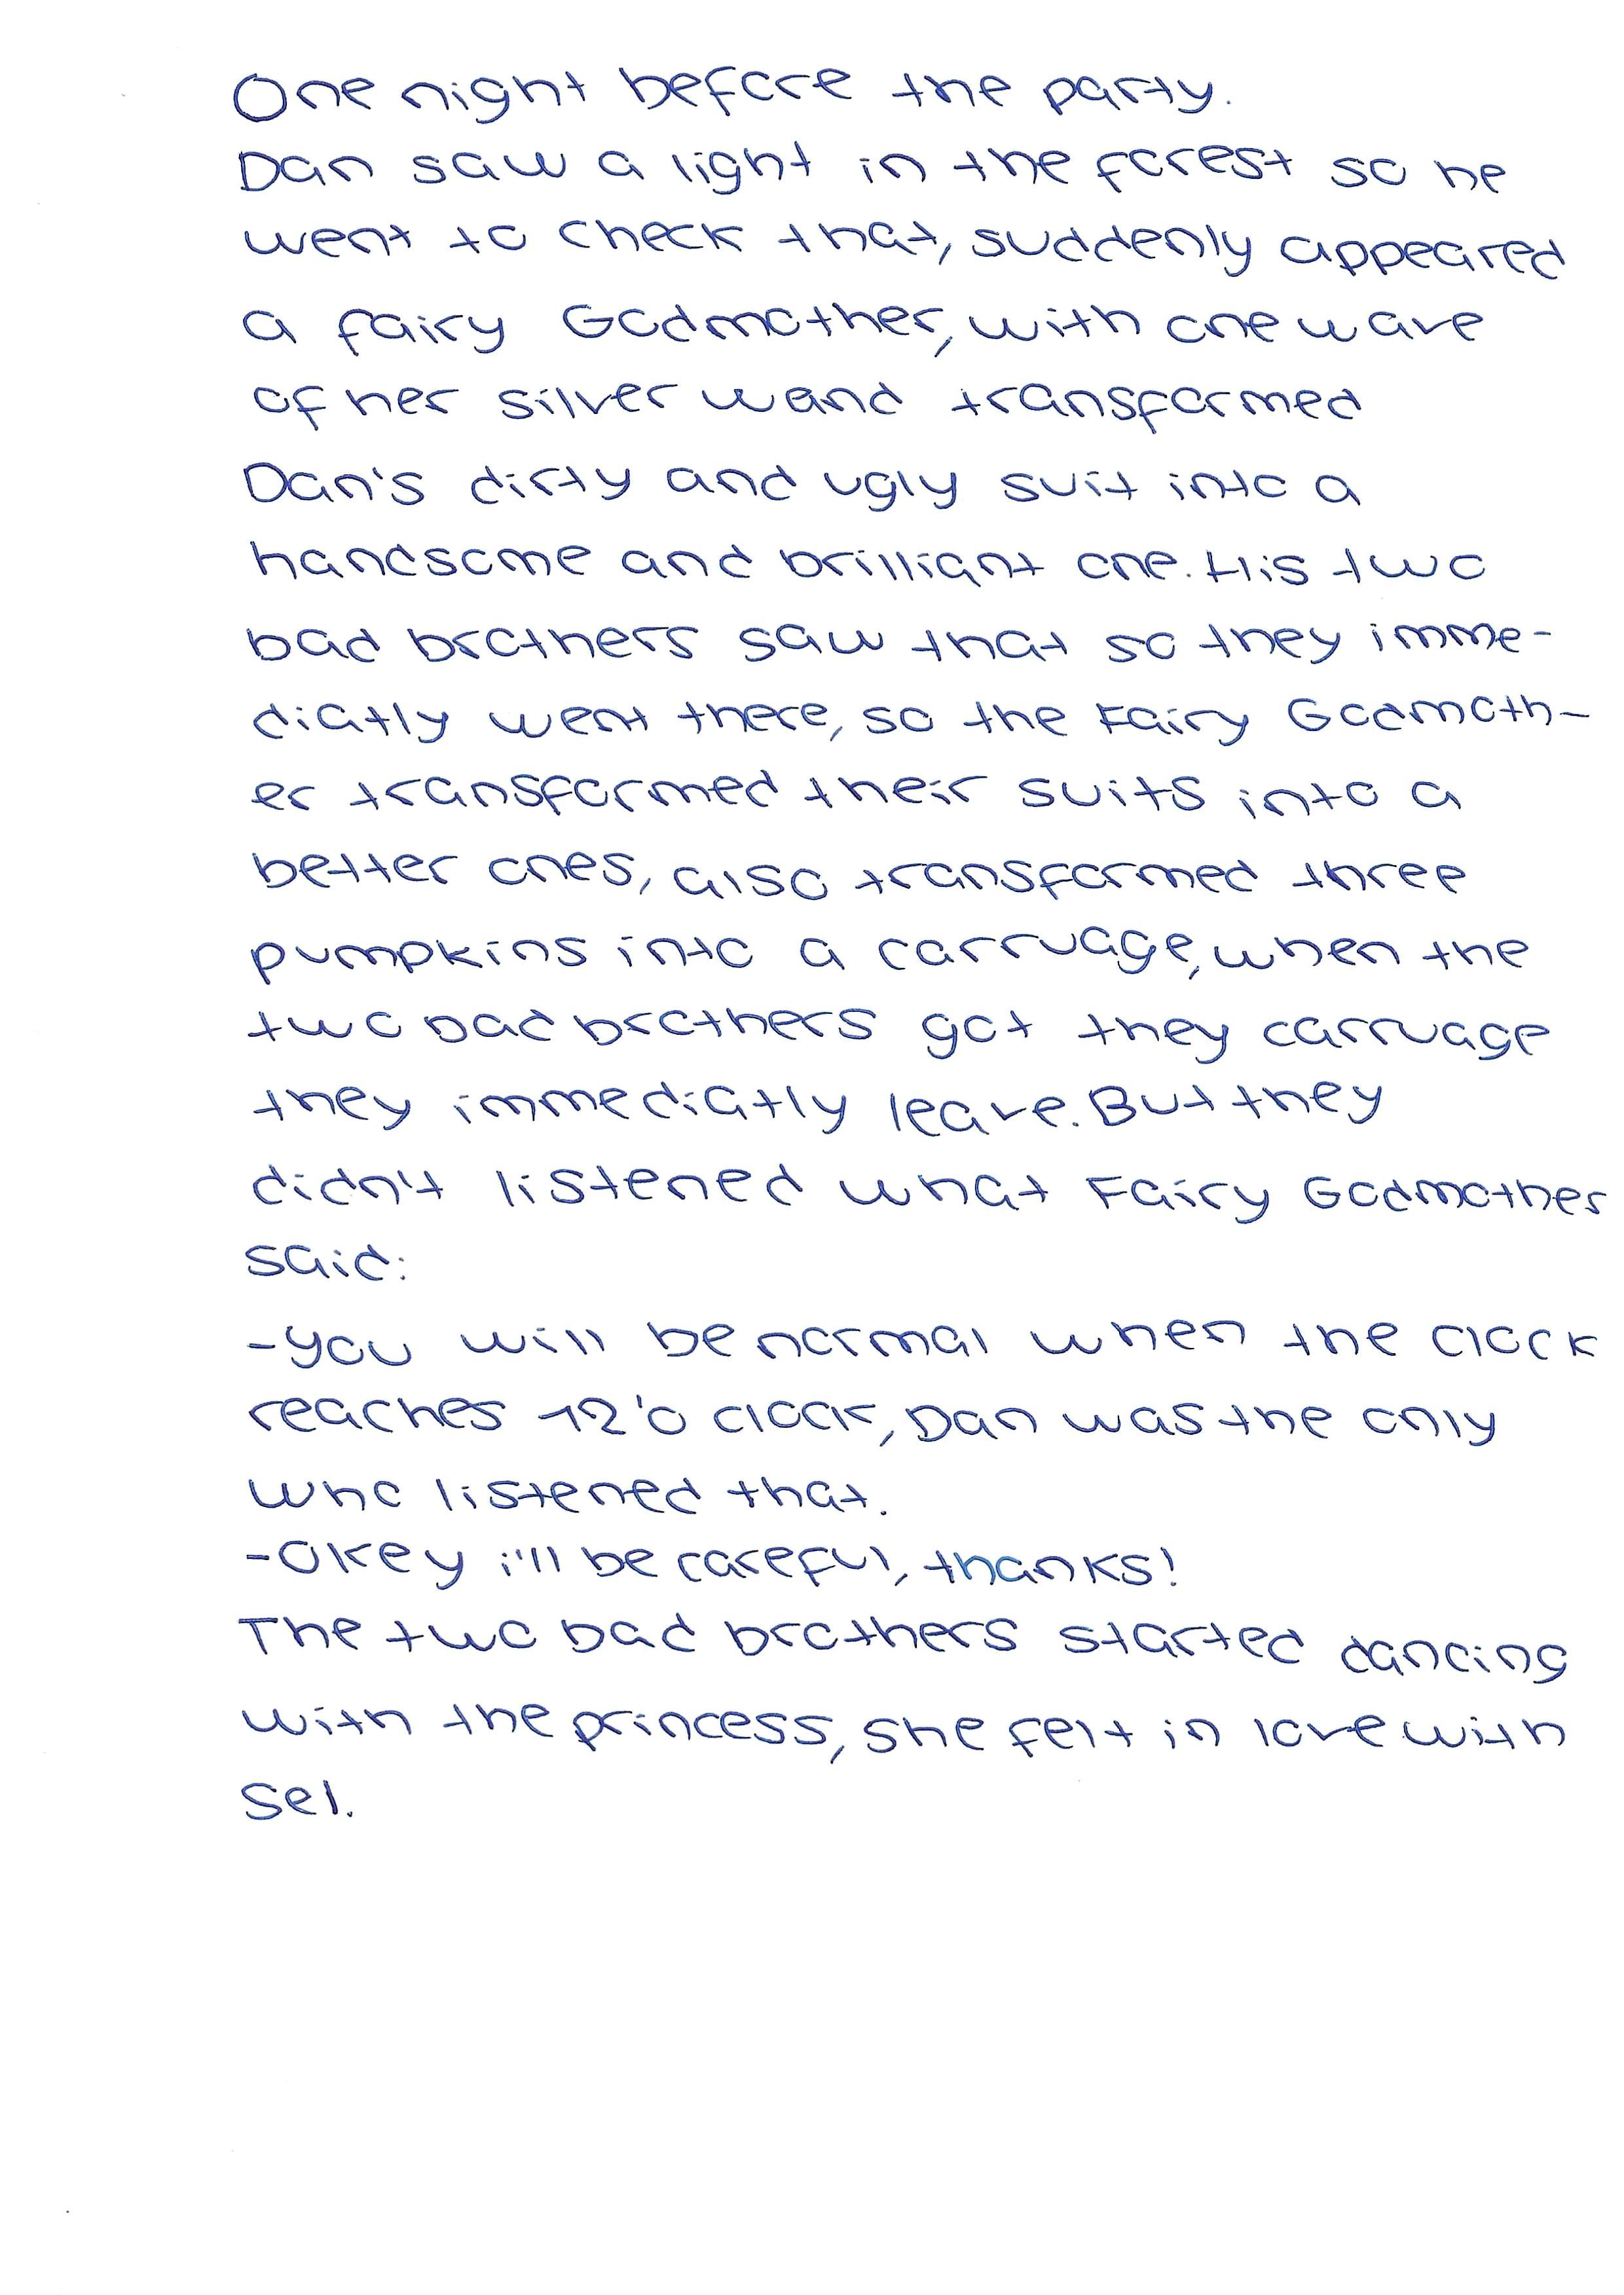 One night before the party.
Dan saw a light in the forest so he
went to check that, suddenly appeared
a fairy Godmother, with one wave
of her silver wand transformed
Dan's dirty and ugly suit into a
handsome and brilliant one. His two
bad brothers saw that so they imme-
diatly went there, so the Fairy Godmoth-
er transformed their suits into a
better ones, also transformed three
pumpkins into a carruage, when the
two bad brothers got they carruage
they immediatly leave. But they
didn't listened what Fairy Godmother
said:
-you will be normal when the clock
reaches 12'o clock, Dan was the only
who listened that.
-Okey i'll be careful, thanks!
The two bad brothers started dancing
with the princess, she felt in love with
Sel.